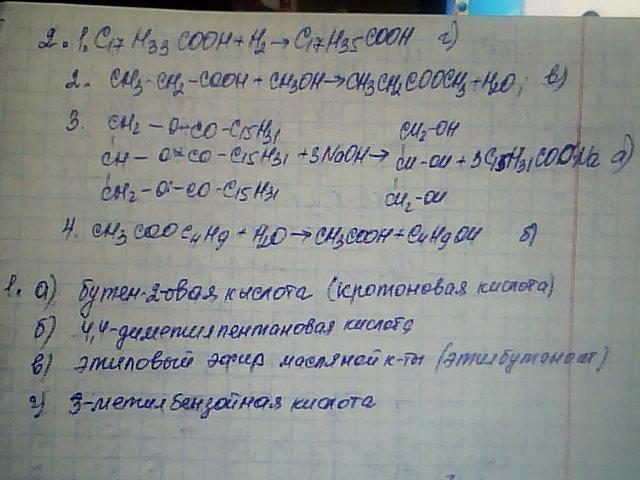 2. 1. C17H33COOH + H2 → C17H35COOH г)
2. CH3-CH2-COOH + CH3OH → CH3CH2COOCH3 + H2O; в)
3. CH2 – O – CO – C15H31 CH2-OH
CH – O – CO – C15H31 + 3NaOH → CH-OH + 3C15H31COONa а)
CH2 – O – CO – C15H31 CH2-OH
4. CH3COOC4H9 + H2O → CH3COOH + C4H9OH б)
1. а) бутен-2-овая кислота (кротоновая кислота)
б) 4,4-диметилпентановая кислота
в) этиловый эфир масляной к-ты (этилбутоноат)
г) 3-метилбензойная кислота